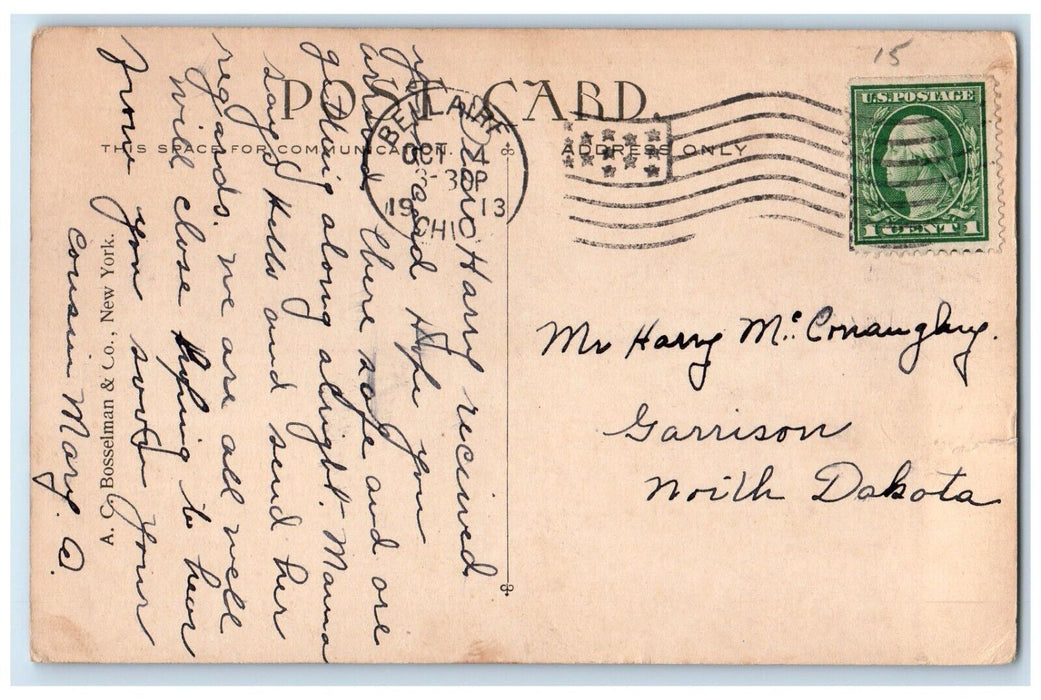 15
POST CARD
THIS SPACE FOR COMMUNICATION.
ADDRESS ONLY
BELLAIRE
OCT 4
3 30P
1913
OHIO
U.S. POSTAGE
1 CENT 1
Dear Harry received
your card Hope you
arrived there safe and are
getting along alright. Mama
says Hello and send her
regards. we are all well
will close hoping to hear
from you soon your
Cousin Mary. A.
Mr Harry Mc Conaughy.
Garrison
North Dakota
A. C. Bosselman & Co., New York.